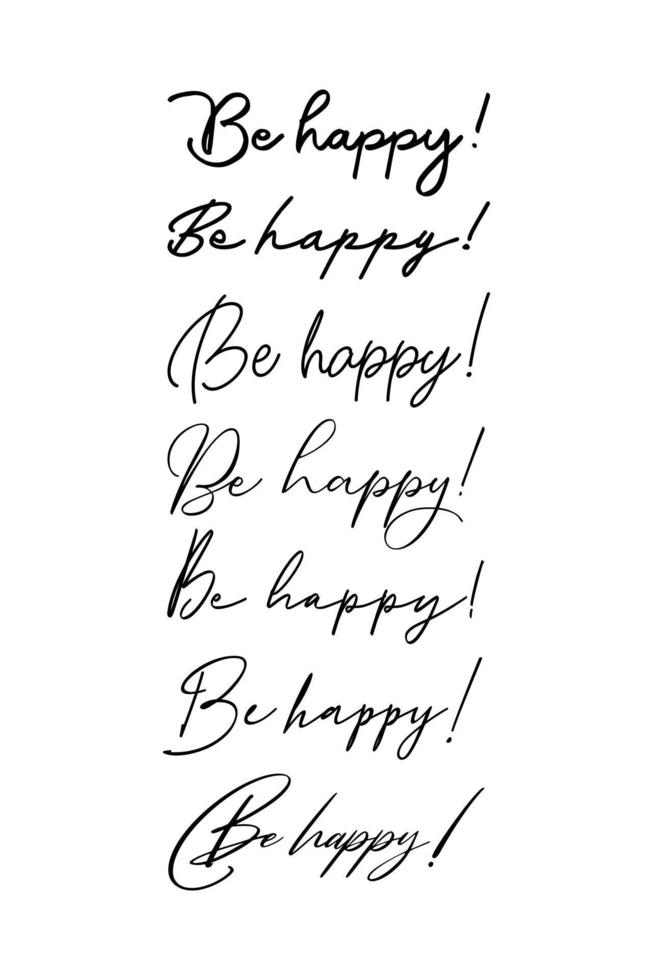 Be happy!
Be happy!
Be happy!
Be happy!
Be happy!
Be happy!
Be happy!